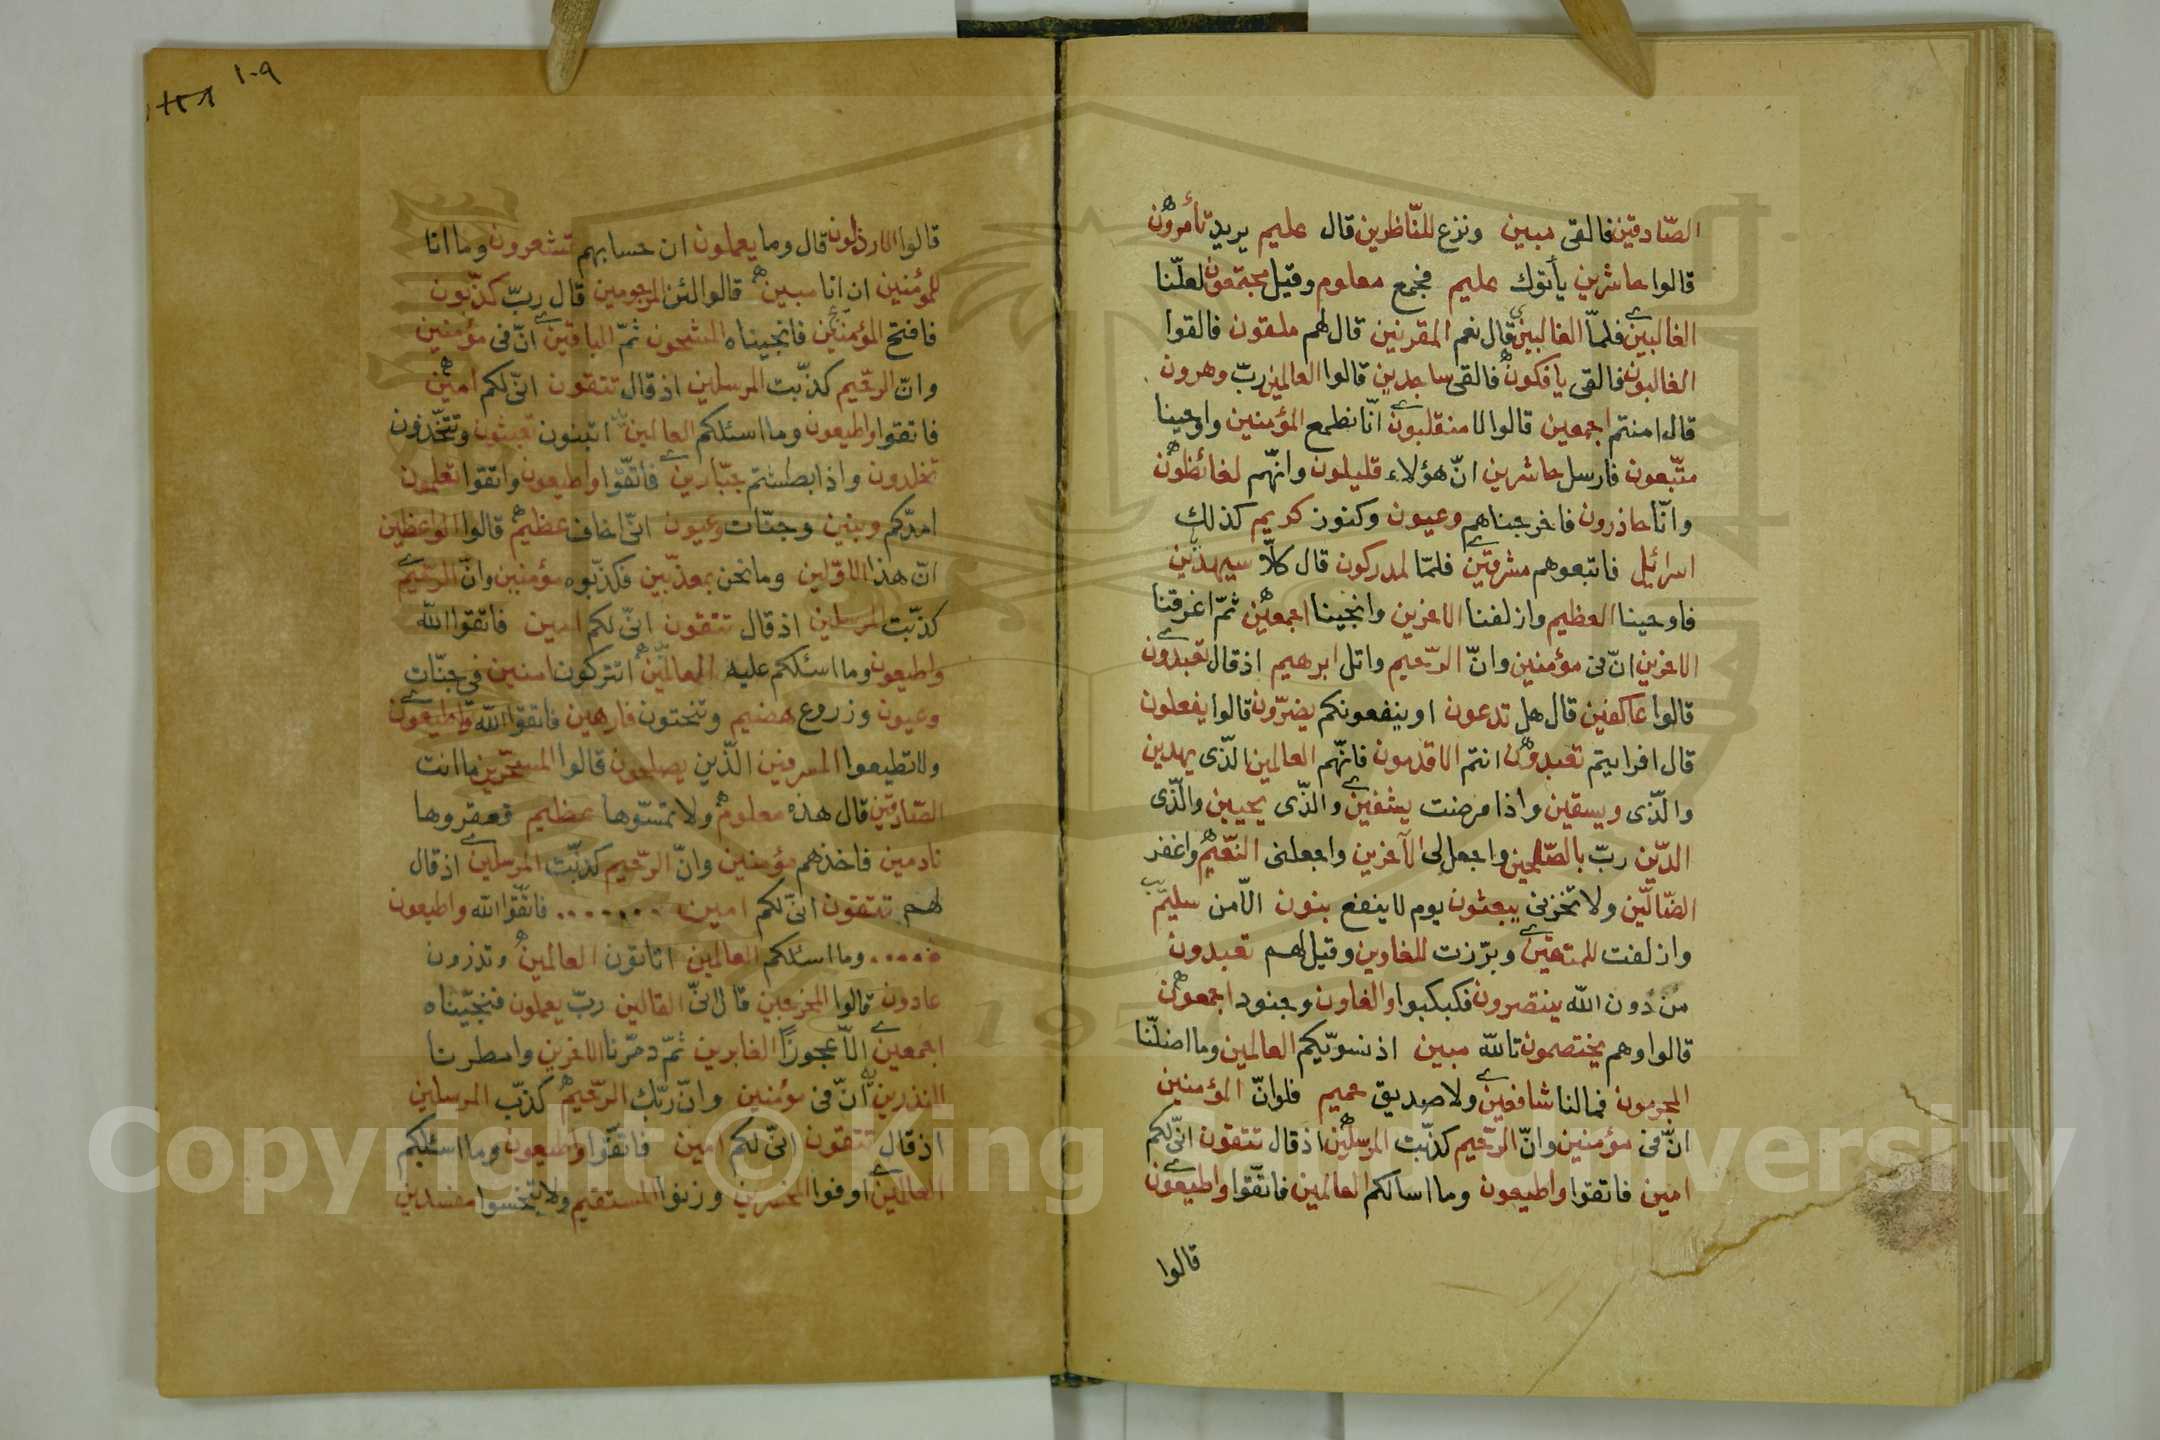 الصّادقين فالقى مبين ونزع للنّاظرين قال عليم يريد تأمرون
قالوا حاشرين يأتوك عليم فجمع معلوم وقيل مجتمعون لعلّنا
الغالبين فلمّا الغالبين قال نعم المقربين قال لهم ملقون فالقوا
الغالبون فالقى يافكون فالقى ساجدين قالوا العالمين ربّ وهرون
قال امنتم اجمعين قالوا لا منقلبون انّا نطمع المؤمنين واوحينا
متّبعون فارسل حاشرين انّ هؤلاء قليلون وانّهم لغائظون
وانّا حاذرون فاخرجناهم وعيون وكنوز كريم كذلك
اسرائيل فاتبعوهم مشرقين فلمّا لمدركون قال كلّا سيهدين
فاوحينا العظيم وازلفنا الاخرين وانجينا اجمعين ثمّ اغرقنا
الاخرين انّ فى مؤمنين وانّ الرّحيم واتل ابرهيم اذ قال تعبدون
قالوا عاكفين قال هل تدعون او ينفعونكم يضرّون قالوا يفعلون
قال افرايتم تعبدون انتم الاقدمون فانّهم العالمين الّذى يهدين
والّذى ويسقين واذا مرضت يشفين والذّى يحيين والّذى
الدّين ربّ بالصّالحين واجعل لى الآخرين واجعلنى النّعيم واغفر
الضّالّين ولا تخزنى يبعثون يوم لا ينفع بنون الّا من سليم
وازلفت للمتقين وبرّزت للغاوين وقيل لهم تعبدون
من دون الله ينتصرون فكبكبوا والغاون وجنود اجمعون
قالوا وهم يختصمون تالله مبين اذ نسوّيكم العالمين وما اضلّنا
المجرمون فما لنا شافعين ولا صديق حميم فلو انّ المؤمنين
انّ فى مؤمنين وانّ الرّحيم كذّبت المرسلين اذ قال تتقون انّى لكم
امين فاتقوا واطيعون وما اسالكم العالمين فاتّقوا واطيعون
قالوا
١٠٩
قالوا الارذلون قال وما يعملون ان حسابهم تشعرون وما انا
للمؤمنين ان انا مبين قالوا لئن المرجومين قال ربّ كذّبون
فافتح المؤمنين فانجيناه المشحون ثمّ الباقين انّ فى مؤمنين
وانّ الرحّيم كذّبت المرسلين اذ قال تتقون انّى لكم امين
فاتقوا واطيعون وما اسئلكم العالمين اتبنون تعبثون وتتّخذون
تخلدون واذا بطشتم جبّارين فاتّقوا واطيعون واتقوا تعلمون
امدّكم وبنين وجنّات وعيون انّى اخاف عظيم قالوا الواعظين
انّ هذا الاوّلين وما نحن بمعذّبين فكذّبوه مؤمنين وانّ الرحّيم
كذّبت المرسلين اذ قال تتقون انّى لكم امين فاتقوا الله
واطيعون وما اسئلكم عليه العالمين اتتركون امنين فى جنّات
وعيون وزروع هضيم وتنحتون فارهين فاتقوا الله واطيعون
ولا تطيعوا المسرفين الّذين يصلحون قالوا المسحّرين ما انت
الصّادقين قال هذه معلوم ولا تمسّوها عظيم فعقروها
نادمين فاخذهم مؤمنين وانّ الرّحيم كذّبت المرسلين اذ قال
لهم تتقون انّى لكم امين فاتّقوا الله واطيعون
وما اسئلكم العالمين اتاتون العالمين وتذرون
عادون قالوا المخرجين قال انّى القالين ربّ يعملون فنجّيناه
اجمعين الّا عجوزًا الغابرين ثمّ دمّرنا الاخرين وامطرنا
المنذرين انّ فى مؤمنين وانّ ربّك الرّحيم كذّب المرسلين
اذ قال تتقون انّى لكم امين فاتّقوا واطيعون وما اسئلكم
العالمين اوفوا المخسرين وزنوا المستقيم ولا تبخسوا مفسدين
Copyright © King Saud University
1957